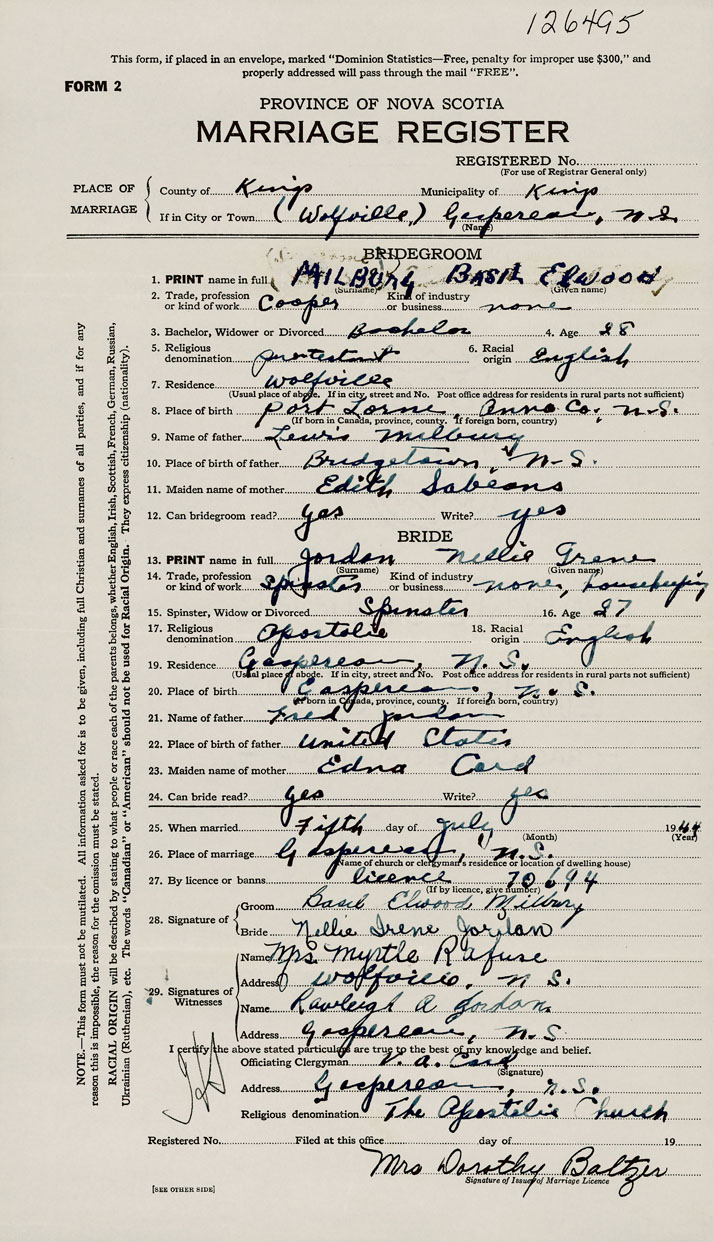 126495
This form, if placed in an envelope, marked "Dominion Statistics—Free, penalty for improper use $300," and
properly addressed will pass through the mail "FREE".
FORM 2
PROVINCE OF NOVA SCOTIA
MARRIAGE REGISTER
REGISTERED No.
(For use of Registrar General only)
PLACE OF MARRIAGE
County of Kings Municipality of Kings
If in City or Town (Wolfville,) Gaspereau, N.S.
(Name)
BRIDEGROOM
1. PRINT name in full MILBURY BASIL Elwood
(Surname) (Given name)
2. Trade, profession or kind of work Cooper Kind of industry or business none
3. Bachelor, Widower or Divorced Bachelor 4. Age 28
5. Religious denomination protestant 6. Racial origin English
7. Residence Wolfville
(Usual place of abode. If in city, street and No. Post office address for residents in rural parts not sufficient)
8. Place of birth Port Lorne, Anna Co., N.S.
(If born in Canada, province, county. If foreign born, country)
9. Name of father Lewis Milbury
10. Place of birth of father Bridgetown, N.S.
11. Maiden name of mother Edith Sabeans
12. Can bridegroom read? yes Write? yes
BRIDE
13. PRINT name in full Jordan Nellie Irene
(Surname) (Given name)
14. Trade, profession or kind of work Spinster Kind of industry or business none, housekeeping
15. Spinster, Widow or Divorced Spinster 16. Age 27
17. Religious denomination Apostolic 18. Racial origin English
19. Residence Gaspereau, N.S.
(Usual place of abode. If in city, street and No. Post office address for residents in rural parts not sufficient)
20. Place of birth Gaspereau, N.S.
(If born in Canada, province, county. If foreign born, country)
21. Name of father Fred Jordan
22. Place of birth of father United States
23. Maiden name of mother Edna Card
24. Can bride read? yes Write? yes
25. When married Fifth day of July 1944
(Month) (Year)
26. Place of marriage Gaspereau, N.S.
(Name of church or clergyman's residence or location of dwelling house)
27. By licence or banns licence 70694
(If by licence, give number)
28. Signature of
Groom Basil Elwood Milbury
Bride Nellie Irene Jordan
29. Signatures of Witnesses
Name Mrs. Myrtle Rafuse
Address Wolfville, N S.
Name Rawleigh A Jordan.
Address Gaspereau, N.S
I certify the above stated particulars are true to the best of my knowledge and belief.
Officiating Clergyman V. A. Card
(Signature)
Address Gaspereau, N.S.
Religious denomination The Apostolic Church
Registered No. Filed at this office day of 19
Mrs Dorothy Baltzer
Signature of Issuer of Marriage Licence
[SEE OTHER SIDE]
NOTE.—This form must not be mutilated. All information asked for is to be given, including full Christian and surnames of all parties, and if for any
reason this is impossible, the reason for the omission must be stated.
RACIAL ORIGIN will be described by stating to what people or race each of the parents belongs, whether English, Irish, Scottish, French, German, Russian,
Ukrainian (Ruthenian), etc. The words "Canadian" or "American" should not be used for Racial Origin. They express citizenship (nationality).